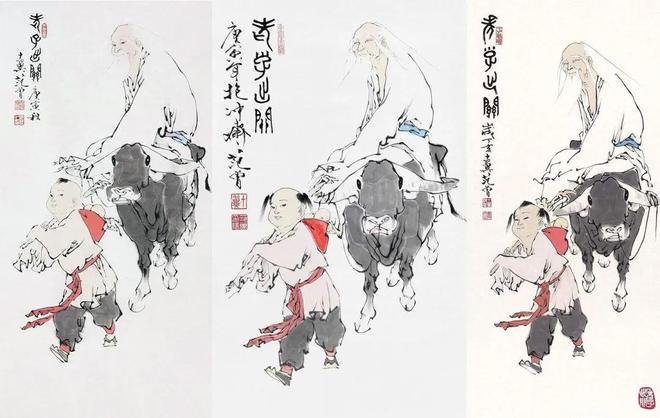 老子出關
庚寅秋
十翼范曾
老子出關
庚寅年抱冲齋范曾
老子出關
歲丁亥十翼范曾